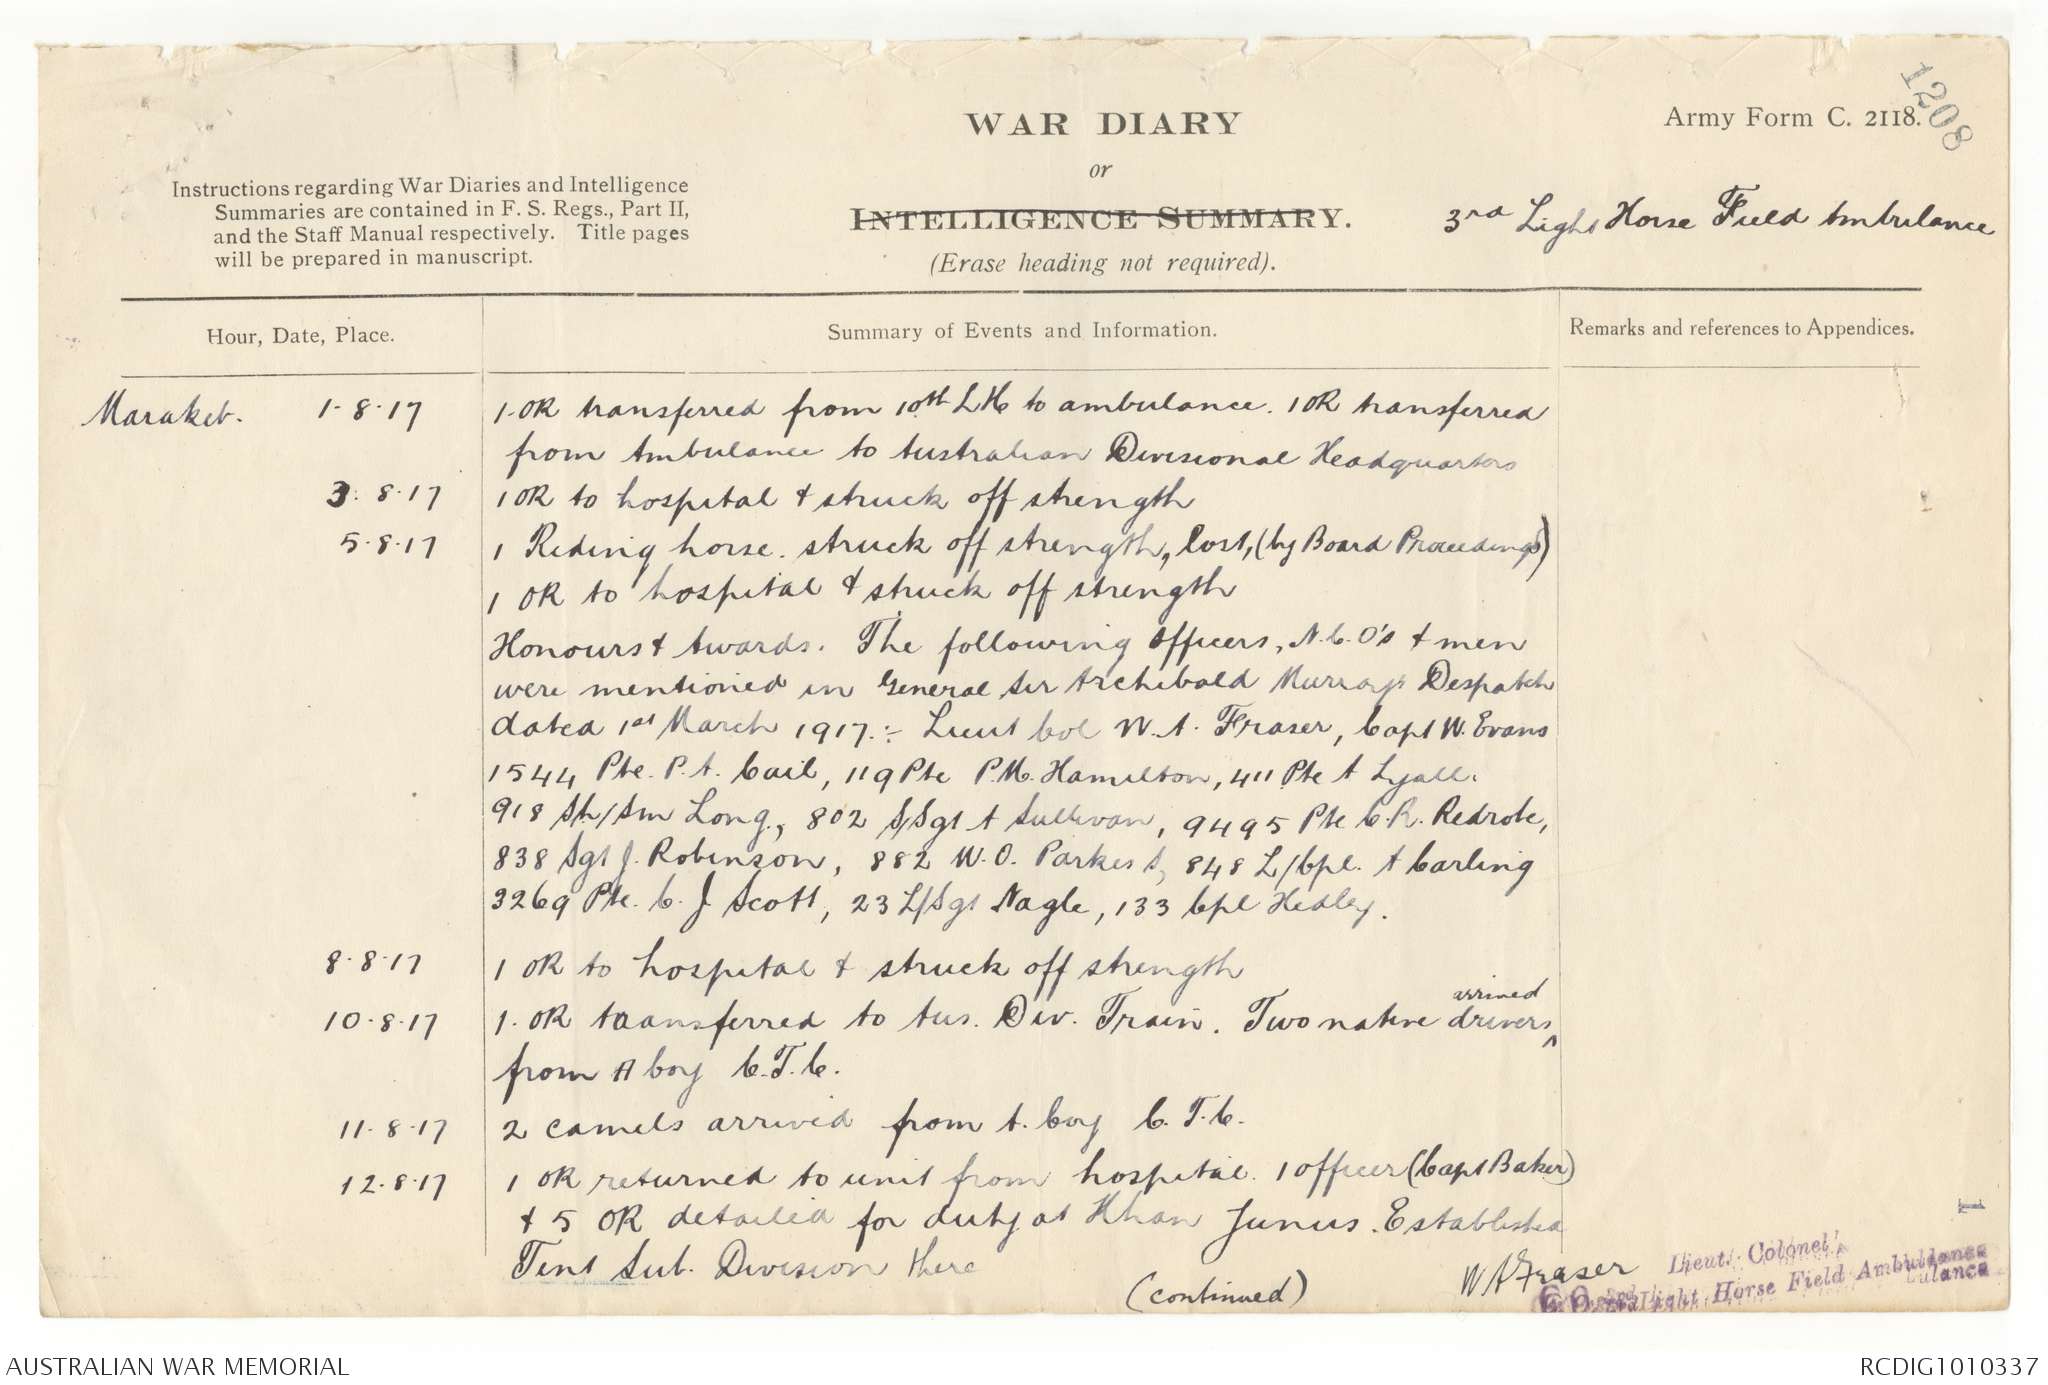 1208
WAR DIARY
Army Form C. 2118.
or
Instructions regarding War Diaries and Intelligence
Summaries are contained in F. S. Regs., Part II,
and the Staff Manual respectively. Title pages
will be prepared in manuscript.
INTELLIGENCE SUMMARY.
(Erase heading not required).
3rd Light Horse Field Ambulance
Hour, Date, Place.
Summary of Events and Information.
Remarks and references to Appendices.
Marakeb. 1-8-17 1.OR transferred from 10th LH to ambulance. 1 OR transferred
from Ambulance to Australian Divisional Headquarters
3.8.17 1 OR to hospital & struck off strength
5.8.17 1 Riding horse. struck off strength, lost, (by Board Proceedings)
1 OR to hospital & struck off strength
Honours & Awards. The following Officers, N.C.O's & men
were mentioned in General Sir Archibald Murray's Despatch
dated 1st March 1917:- Lieut Col W. A. Fraser, Capt W. Evans
1544 Pte. P. A. Cail, 119 Pte P.M. Hamilton, 411 Pte A Lyall.
918 Sh/Sm Long, 802 S/Sgt A Sullivan, 9495 Pte C.R. Redrobe,
838 Sgt J. Robinson, 882 W.O. Parkes S, 848 L/Cpl. A Carling
3269 Pte. C. J Scott, 23 L/Sgt Nagle, 133 Cpl Hedley.
8.8.17 1 OR to hospital & struck off strength
10.8.17 1. OR transferred to Aus. Div. Train. Two native drivers arrived
from A Coy C.T.C.
11.8.17 2 camels arrived from A. Coy C.T.C.
12.8.17 1 OR returned to unit from hospital. 1 officer (Capt Baker)
& 5 OR detailed for duty at Khan Junus. Established
Tent Sub. Division there
(continued)
W A Fraser Lieut. Colonel
Light Horse Field Ambulance
1
AUSTRALIAN WAR MEMORIAL
RCDIG1010337